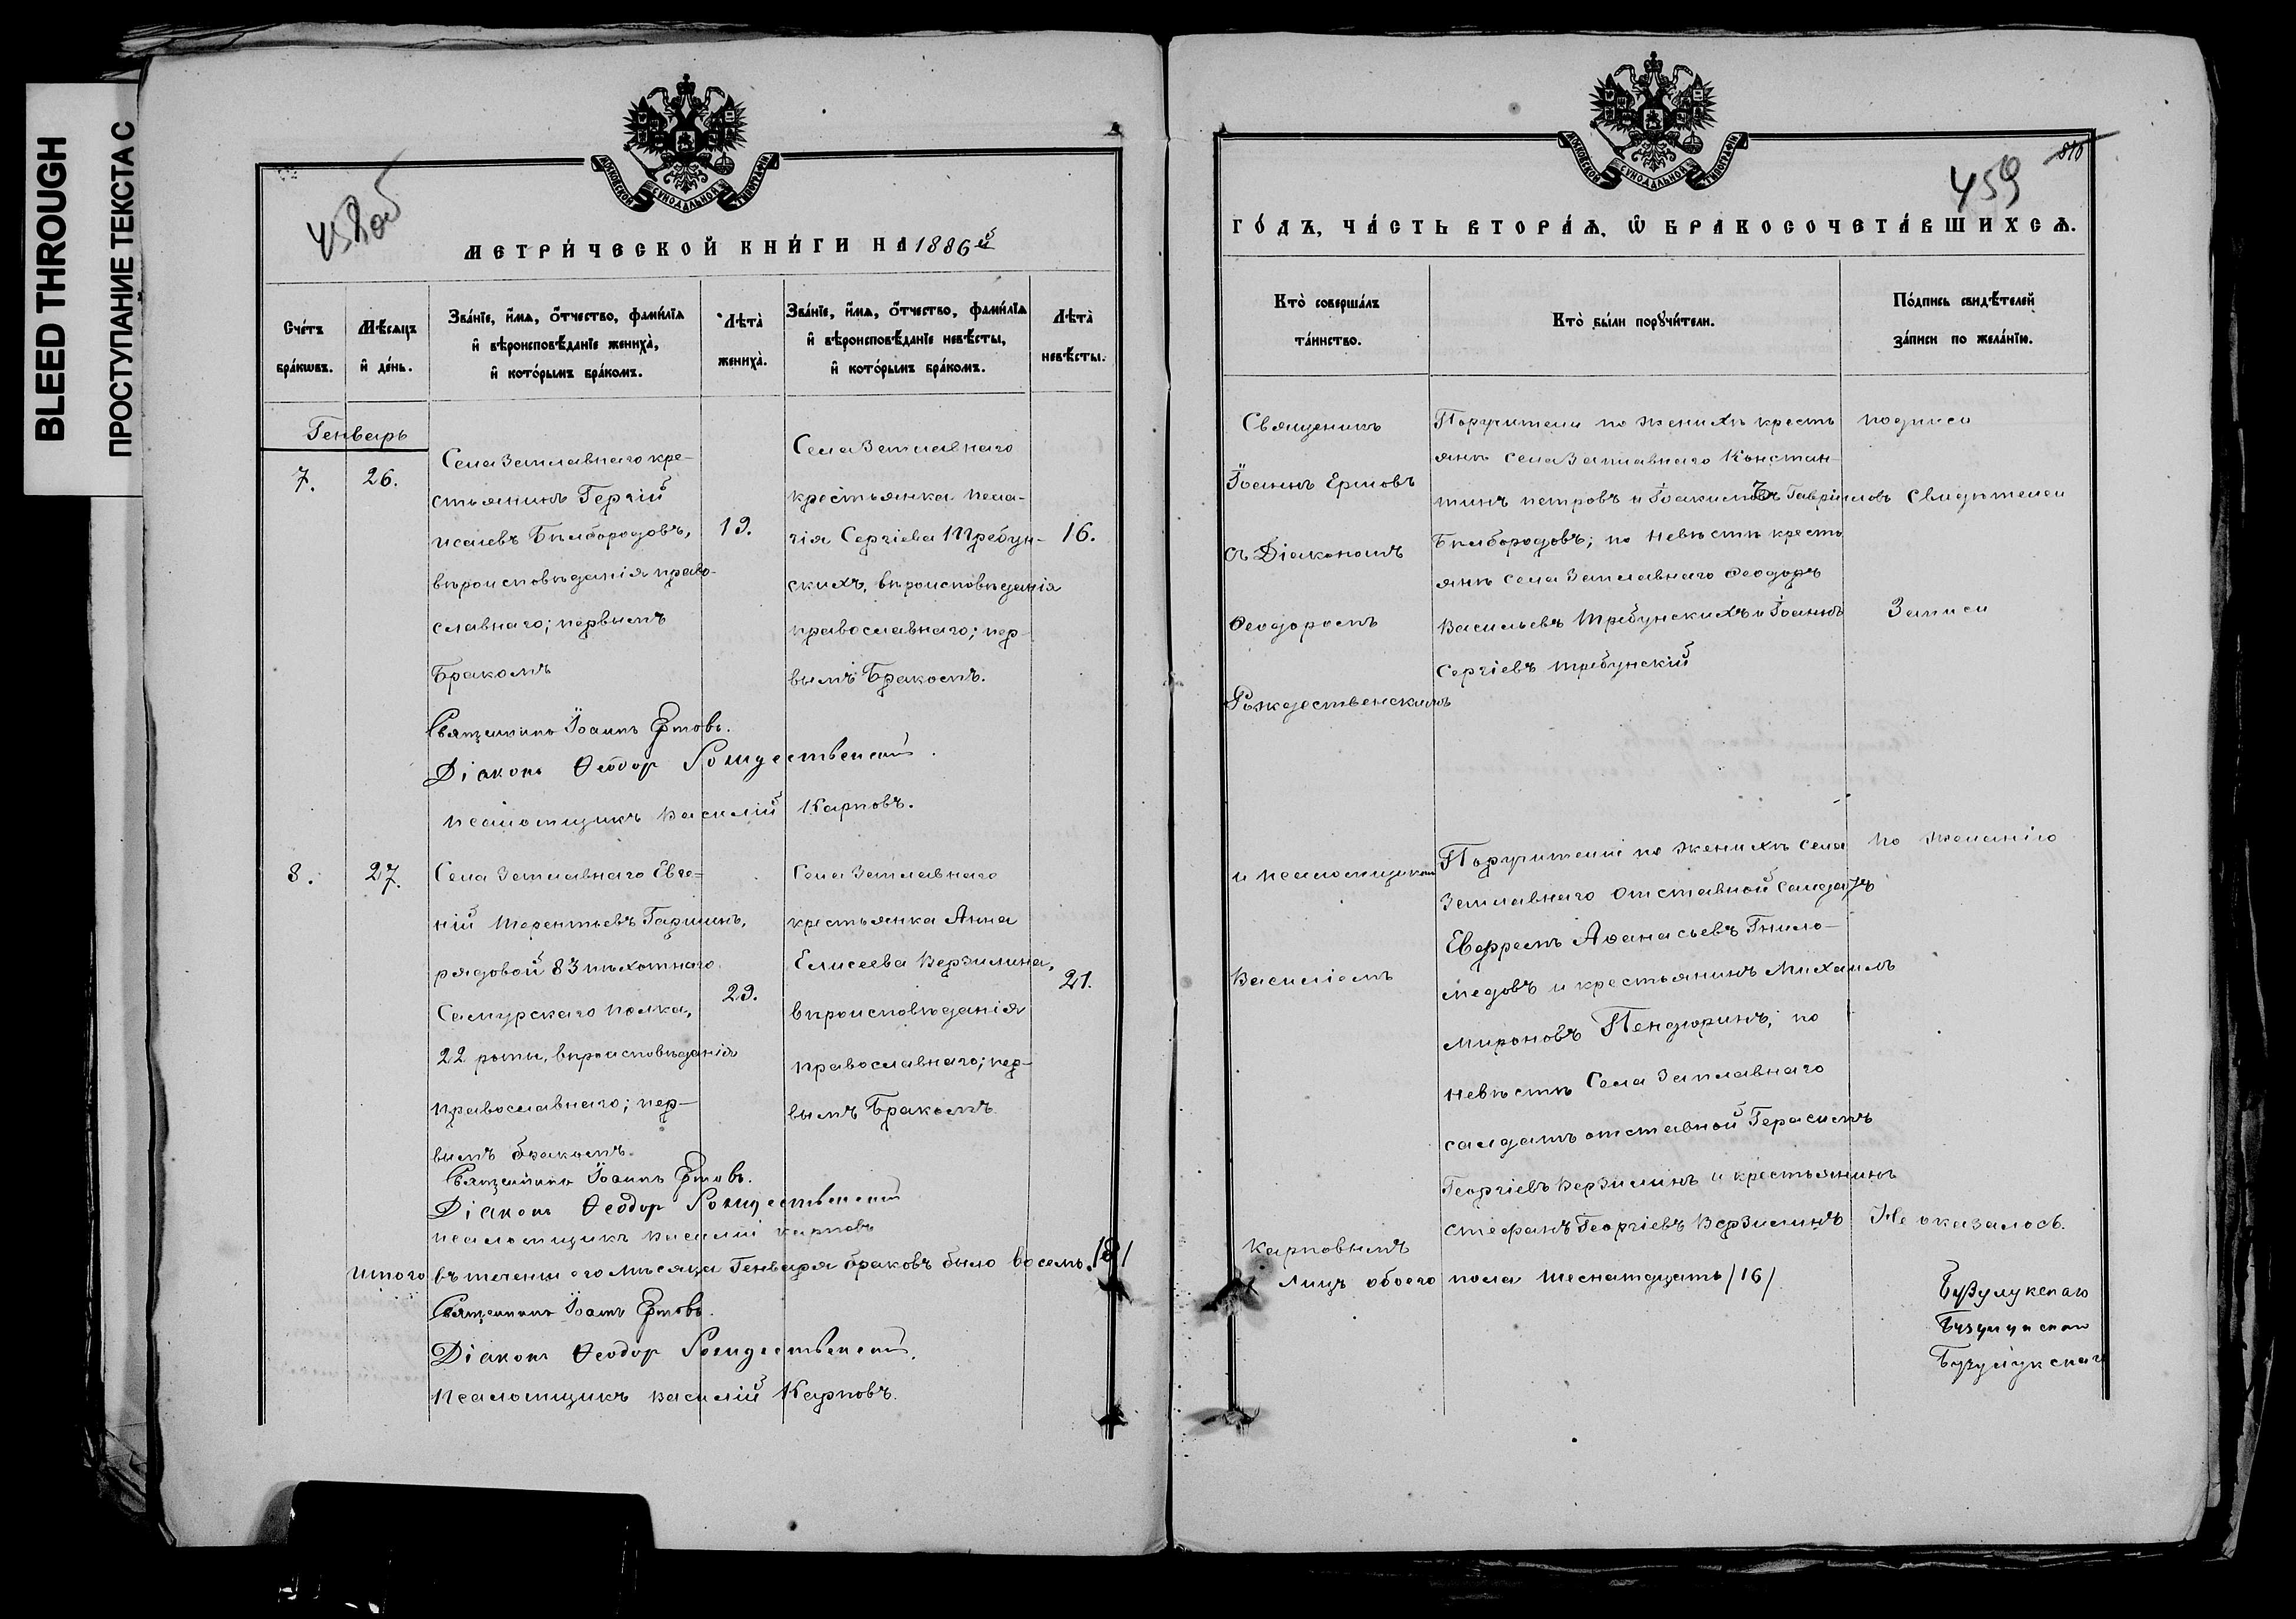 BLEED THROUGH
ПРОСТУПАНИЕ ТЕКСТА С
458об
МОСКОВСКОЙ СУНОДАЛЬНОЙ ТИПОГРАФІИ
МЕТРИ́ЧЕСКОЙ КНИ́ГИ НА 1886й
Сче́тъ бра́кѡвъ.
Мѣ́сяцъ и҆ де́нь.
Зва́нїе, и҆́мѧ, ѻ҆́тчество, фами́лїѧ и҆ вѣроисповѣ́данїе жениха̀, и҆ кото́рымъ бра́комъ.
Лѣта̀ жениха̀.
Зва́нїе, и҆́мѧ, ѻ҆́тчество, фами́лїѧ и҆ вѣроисповѣ́данїе невѣ́сты, и҆ кото́рымъ бра́комъ.
Лѣта̀ невѣ́сты.
Генварь
7.
26.
Села Заплавнаго кре-
стьянинъ Гергій
Исаевъ Бѣлбородовъ,
вѣроисповѣданія право-
славнаго; первымъ
Бракомъ
19.
Села Заплавнаго
крестьянка Пела-
гія Сергіева Требун-
скихъ, вѣроисповѣданія
православнаго; пер-
вымъ Бракомъ.
16.
Священникъ Іоаннъ Ермовъ.
Діаконъ Ѳеодор Рождественскій.
Псаломщикъ Василій Карповъ.
8.
27.
Села Заплавнаго Евге-
ній Терентьевъ Гаршинъ,
рядовой 83 пѣхотнаго
Самурскаго полка,
22 роты, вѣроисповѣданія
православнаго; пер-
вымъ бракомъ.
29.
Села Заплавнаго
крестьянка Анна
Елисеева Верзилина,
вѣроисповѣданія
православнаго; пер-
вымъ Бракомъ
21.
Священникъ Іоаннъ Ермовъ.
Діаконъ Ѳеодор Рождественскій
Псаломщикъ Василій Карповъ
Итого въ теченіи сего мѣсяца Генваря браковъ было восемь. /8/
Священникъ Іоаннъ Ермовъ.
Діаконъ Ѳеодор Рождественскій.
Псаломщикъ Василій Карповъ.
МОСКОВСКОЙ СУНОДАЛЬНОЙ ТИПОГРАФІИ
459
816
ГО́ДЪ, ЧА́СТЬ ВТОРА́Ѧ, Ѽ БРАКОСОЧЕТА́ВШИХСѦ.
Кто̀ соверша́лъ та́инство.
Кто̀ бы́ли порꙋчи́тели.
По́дпись свидѣ́телей за́писи по жела́нїю.
Священникъ
Іоаннъ Ермовъ
съ Діакономъ
Ѳеодоромъ
Рождественскимъ
Поручители по женихѣ кресть
янѣ села Заплавнаго Констан-
тинъ Петровъ и Іоакимовъ Гавріиловъ
Бѣлбородовъ; по невѣстѣ кресть
янѣ села Заплавнаго Ѳеодоръ
Васильевъ Требунскихъ и Іоаннъ
Сергіевъ Требунскій
подписи
Свидѣтелей
Записи
и псаломщикомъ
Василіемъ
Карповымъ
Поручители по женихѣ села
Заплавнаго Отставной Салдатъ
Евфремъ Аѳанасьевъ Гнило-
медовъ и крестьянинъ Михаилъ
Мироновъ Пендюринъ; по
невѣстѣ Села Заплавнаго
салдатъ отставной Герасимъ
Георгіевъ Верзилинъ и крестьянинъ
Стефанъ Георгіевъ Верзилинъ
По желанію
Не оказалось.
Лицъ обоего пола Шеснатдцать /16/